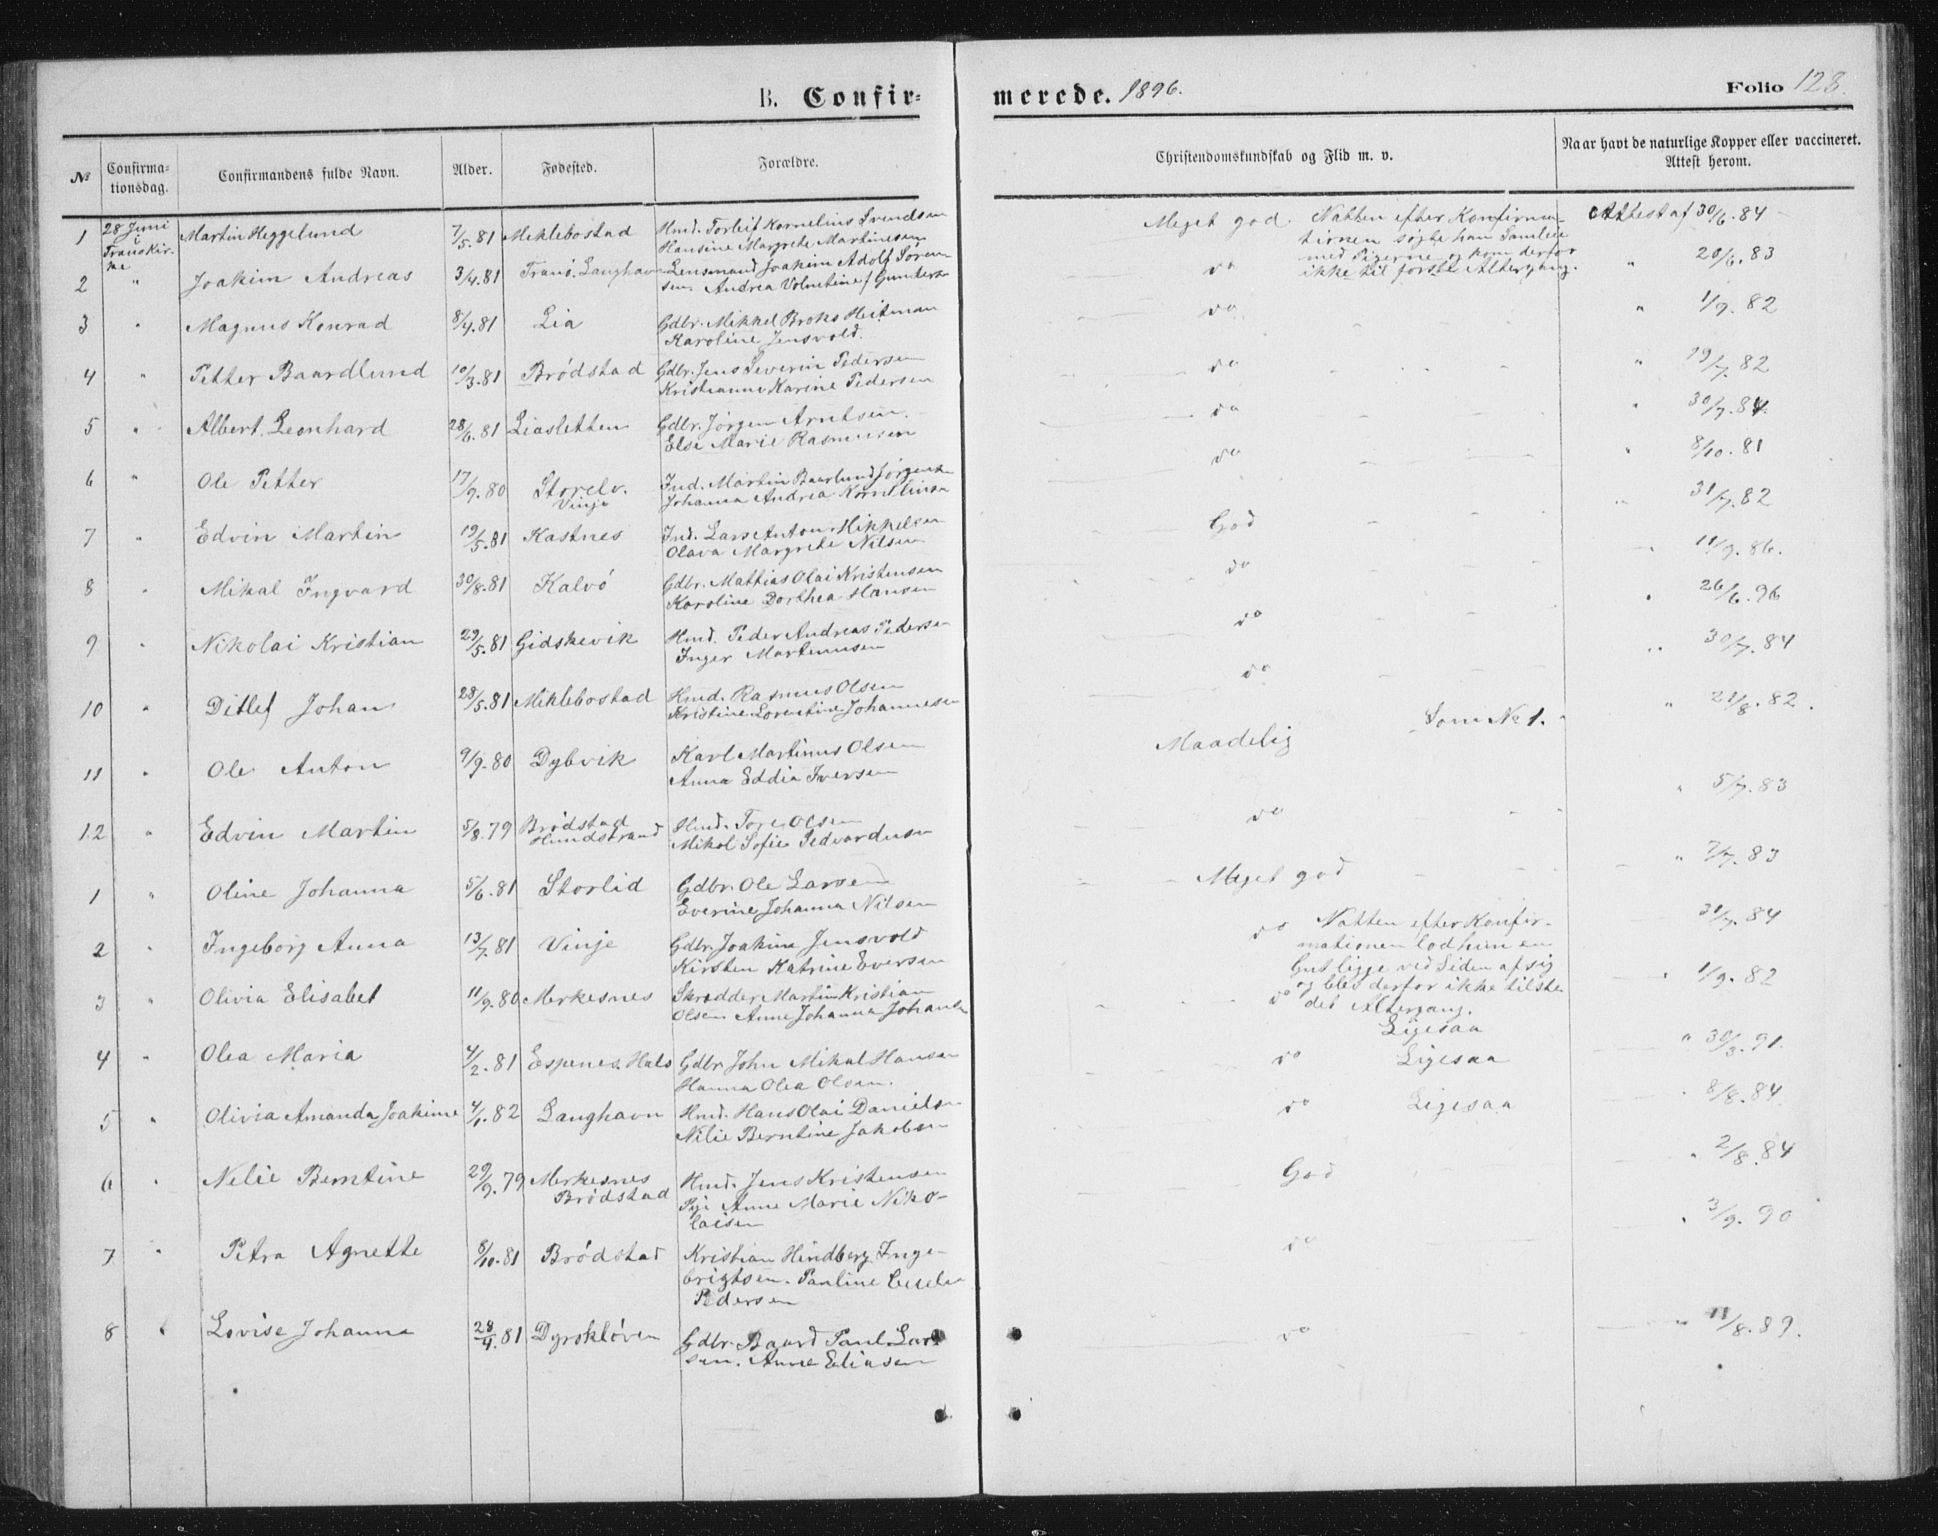 B. Confir-
merede. 1896.
Folio 128.
№
Confirma-
tionsdag.
Confirmandens fulde Navn.
Alder.
Fødested.
Forældre.
Christendomskundskab og Flid m. v.
Naar havt de naturlige Kopper eller vaccineret.
Attest herom.
1 28 Juni i Transkir- ke Martin Heggelund 7/5.81 Miklebostad Hmd. Torleif Kornelius Svendsen
Hansine Margrete Martinesen
Meget god. Natten efter Konfirma-
tionen søgte han Samleie
med Pigerne og kom derfor
ikke til første Altergang.
Attest af 30/6.84
2 " Joakim Andreas 3/4.81 Tranö. Langhavn Lensmand Joakim Adolf Søren-
sen. Andrea Volnetine f Gunders
do " 20/6.83
3 " Magnus Konrad 8/4.81 Lia Gdbr. Mikkel Broks Heitman
Karoline Jensvold.
do " 1/9.82
4 " Petter Baardlund 10/3.81 Brödstad Gdbr. Jens Severin Pedersen
Kristianne Karine Pedersen
do " 19/7.82
5 " Albert Leonhard 28/6.81 Liasletten Gdbr. Jørgen Arntsen.
Else Marie Rasmussen
do " 30/7.84
6 " Ole Petter 17/9.80 Storelv.
Vinje
Ind. Martin Baarlund Jørgensen
Johanna Andrea Kornelius
do " 8/10.81
7 " Edvin Martin 19/5.81 Kastnes Ind. Lars Anton Mikkelsen
Olava Margrete Nilsen
God " 31/7.82
8 " Mikal Ingvard 30/8.81 Kalvö Gdbr. Mathias Olai Kristensen
Karoline Dorthea Hansen
do 11/9.86.
9 " Nikolai Kristian 29/5.81 Gidskevik Hmd. Peder Andreas Pederse-
Inger Martinusen
do " 26/6.96
10 " Ditlef Johan 28/5.81 Miklebostad Hmd. Rasmus Olsen
Kristine Lorentine Johannesen
do " 30/7.84
11 " Ole Anton 9/9.80 Dybvik Karl Martinus Olsen
Anna Eddia Iversen
Maadelig Som No 1. " 21/8.82.
12 " Edvin Martin 5/8.79 Brödstad
Hundstrand
Hmd. Tore Olsen
Mikol Sofie Pedvardsen
do " 5/7.83
1 " Oline Johanna 5/6.81 Storlid Gdbr. Ole Larsen
Everine Johanna Nilsen
Meget god " 7/7.83
2 " Ingeborg Anna 13/7.81 Vinje Gdbr. Joakim Jensvold
Kirsten Katrine Eversen
do Natten efter Konfir-
mationen lod hun en
Gut ligge ved Siden af sig
og blev derfor ikke tilste-
det Altergang.
31/7.84
3 " Olivia Elisabet 11/9.80 Merkesnes Skrædder Martin Kristian
Olsen Anne Johanna Johanse
do Ligesaa " 1/9.82
4 " Olea Maria 4/2.81 Espenes. Hals Gdbr John Mikal Hansen
Hanna Olea Olsen.
do Ligesaa " 30/3.91.
5 " Olivia Amanda Joakime 4/1.82 Langhavn Hmd. Hans Olai Danielse
Nilie Berntine Jakobsen
do Ligesaa " 8/8.84.
6 " Nelie Berntine 29/9.79 Merkesnes
Brödstad
Hmd. Jens Kristensen
Pige Anne Marie Niko-
laisen
God " 2/8.84
7 " Petra Agnette 8/10.81 Brödstad Kristian Hindberg Inge-
brigtsen. Pauline
Pedersen
do " 3/9.90
8 " Lovise Johanna 28/4.81 Dyrskløven Gdbr. Baard Paul Lar-
sen. Anne Eliasen
do " 11/8.89.